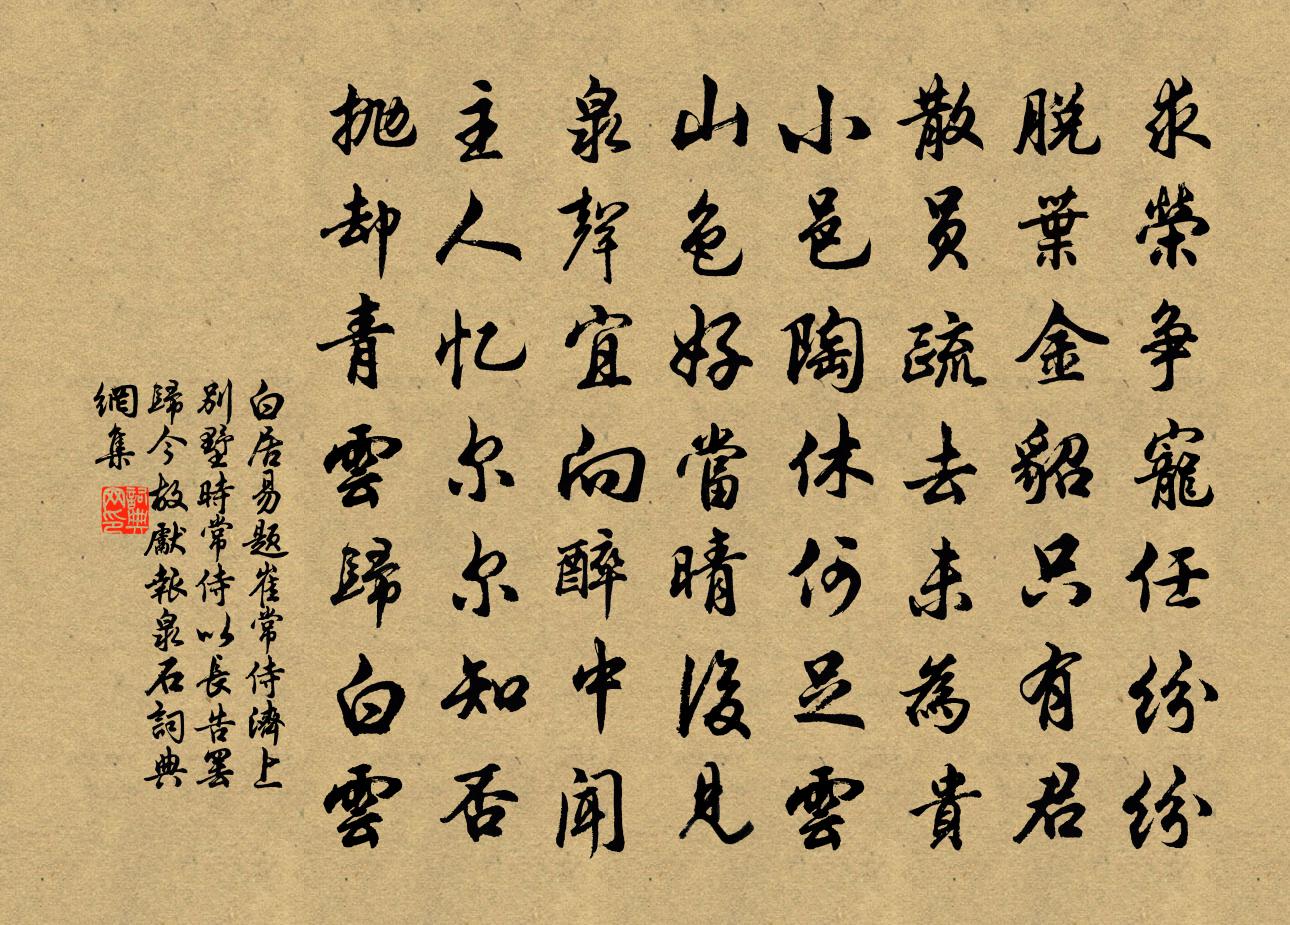 求榮争寵任纷纷
脫葉金貂只有君
散員疏去未為貴
小邑陶休何足雲
山色好當晴後見
泉聲宜向醉中聞
主人忆尔尔知否
抛却青雲歸白雲
白居易题崔常侍濟上
别墅時常侍以長告罢
歸今故獻報泉石詞典
網集
詞典
网印